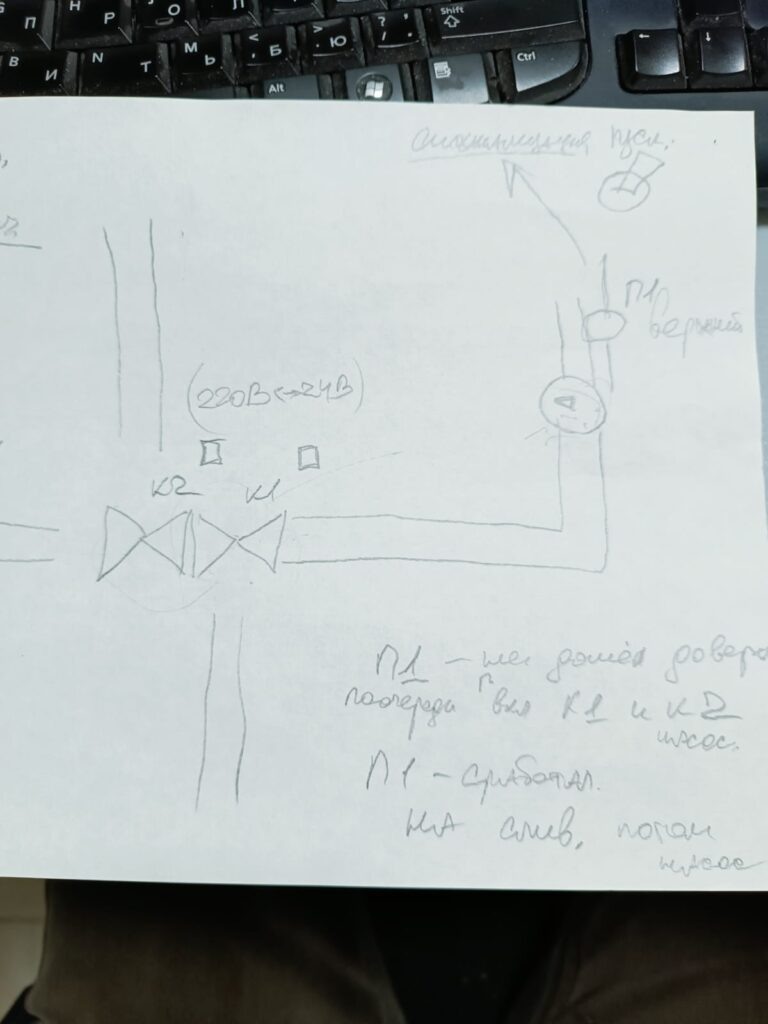 П
Н
Р
О
Л
Д
Shift
В И
N Т
М Ь
< , Б
> . Ю
? / .
Alt
Ctrl
←
↓
Сигнализация
П1
верхний
(220В ↔ 24В)
К2 К1
П1 – не дошёл доверх
поочерёди вкл К1 и К2
насос.
П1 – сработал.
НА слив, потом
насос